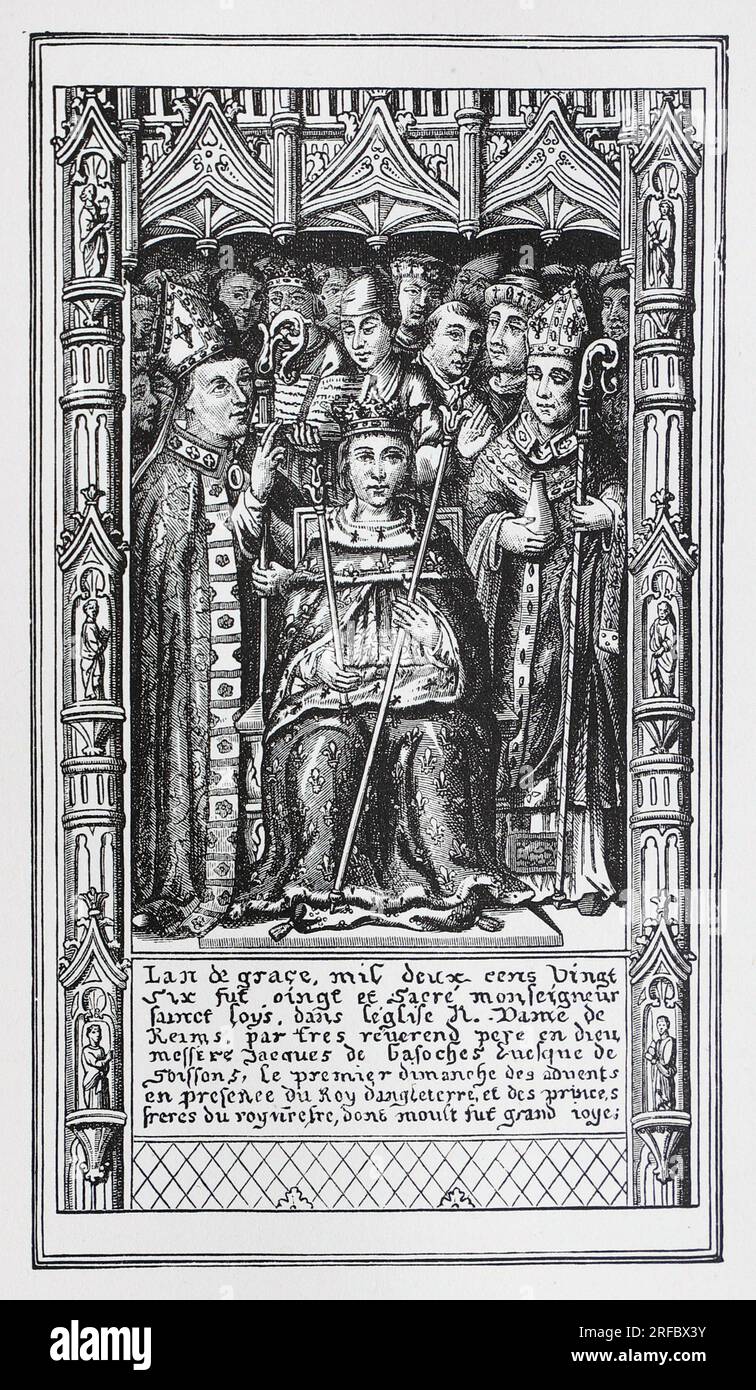 Lan de grace, mil deux cens vingt
six fut oingt et sacré monseigneur
sainct loys, dans leglise N. Dame de
Reims, par tres reverend pere en dieu
messere Jacques de basoches evesque de
Soissons, le premier dimanche des advents
en presence du Roy dangleterre, et des princes
freres du roy nrestre, dont moult fut grand ioye;
alamy
Image ID: 2RFBX3Y
www.alamy.com